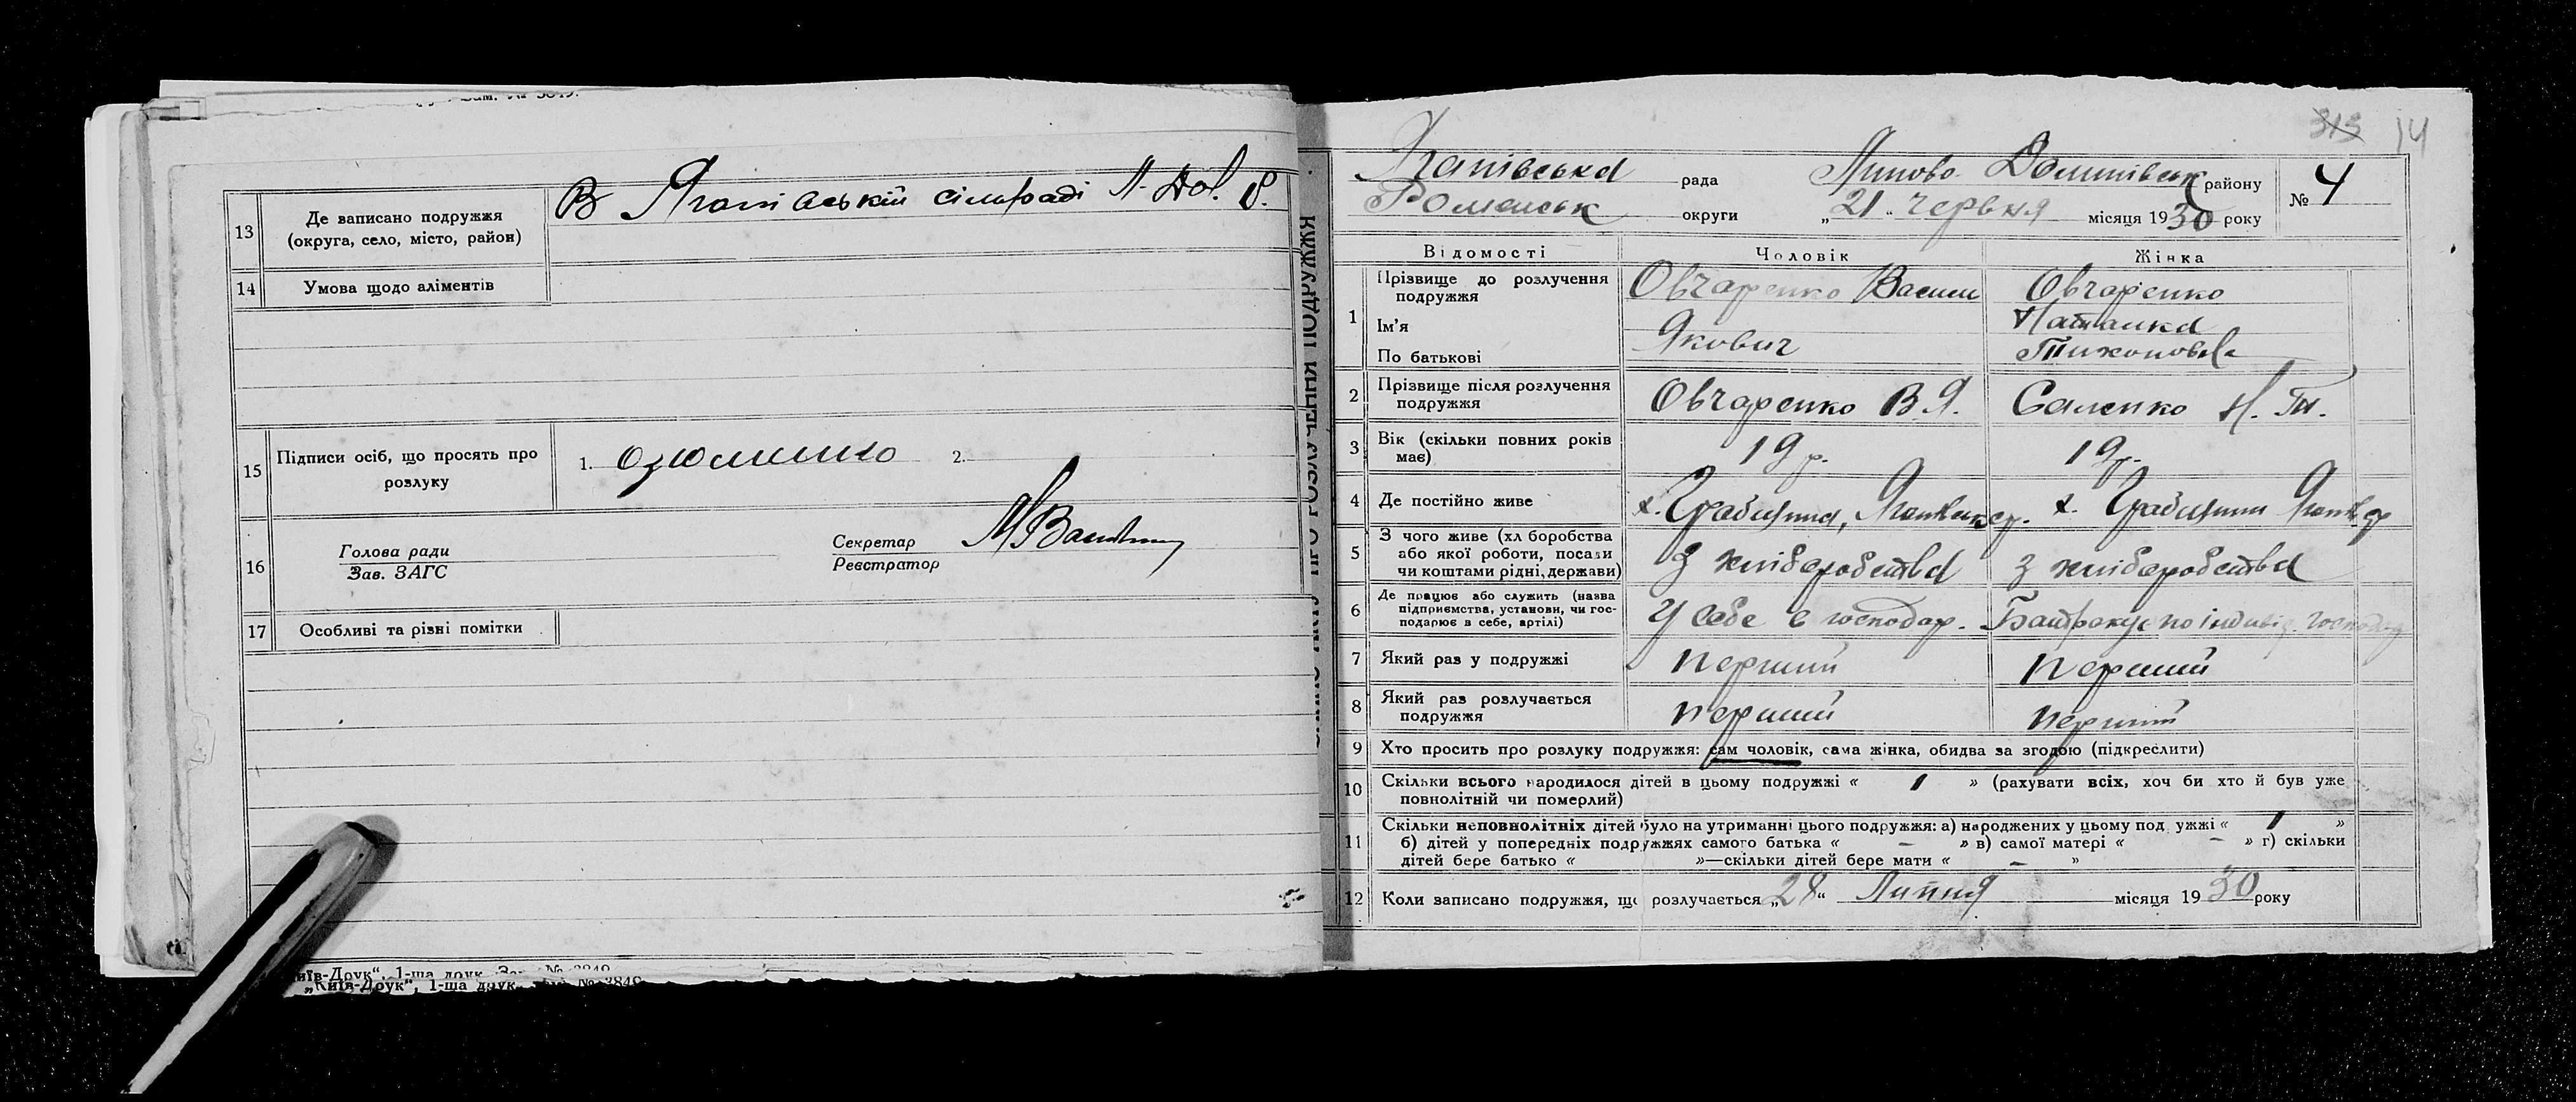 13 Де записано подружжя
(округа, село, місто, район)
В сільраді
14 Умова щодо аліментів
15 Підписи осіб, що просять про
розлуку
1. 2.
16 Голова ради
Зав. ЗАГС
Секретар
Реєстратор
17 Особливі та різні помітки
„Київ-Друк", 1-ша друк. № 3849
313 14
рада Липово Долинівськ району
№ 4
Роменськ округи „21" червня місяця 1930 року
Відомості Чоловік Жінка
1 Прізвище до розлучення
подружжя
Овчаренко Васил Овчаренко
Ім'я
Наталка
По батькові
Якович Тихоновна
2 Прізвище після розлучення
подружжя
Овчаренко В. Я. Саленко Н. Т.
3 Вік (скільки повних років
має)
19 р. 19 р.
4 Де постійно живе
х. х.
5 З чого живе (хліборобства
або якої роботи, посади
чи коштами рідні, держави)
З хліборобства З хліборобства
6 Де працює або служить (назва
підприємства, установи, чи гос-
подарює в себе, артілі)
У себе в господар. Батракує по індивід. господар
7 Який раз у подружжі
перший перший
8 Який раз розлучається
подружжя
перший перший
9 Хто просить про розлуку подружжя: сам чоловік, сама жінка, обидва за згодою (підкреслити)
10 Скільки всього народилося дітей в цьому подружжі « 1 » (рахувати всіх, хоч би хто й був уже
повнолітній чи померлий)
11 Скільки неповнолітніх дітей було на утриманні цього подружжя: а) народжених у цьому подружжі « 1 »
б) дітей у попередніх подружжях самого батька « – » в) самої матері « – » г) скільки
дітей бере батько « »—скільки дітей бере мати « – »
12 Коли записано подружжя, що розлучається „28" Липня місяця 1930 року